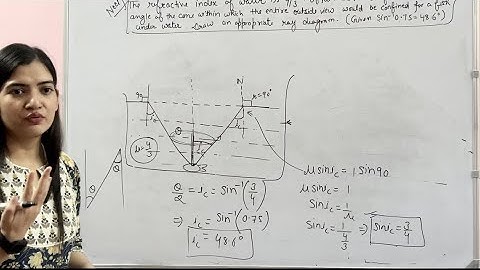 The refractive index of water is 4/3
angle of the cone within which the entire outside view would be confined for a fish
under water. Draw an appropriate ray diagram. (Given sin⁻¹ 0.75 = 48.6°)
N
r = 90°
ic
ic
θ
μ = 4/3
S
θ
θ
θ/2 = ic = sin⁻¹(3/4)
⇒ ic = sin⁻¹(0.75)
ic = 48.6°
μ sin ic = 1 sin 90
μ sin ic = 1
sin ic = 1/μ
sin ic = 1/(4/3) ⇒ sin ic = 3/4